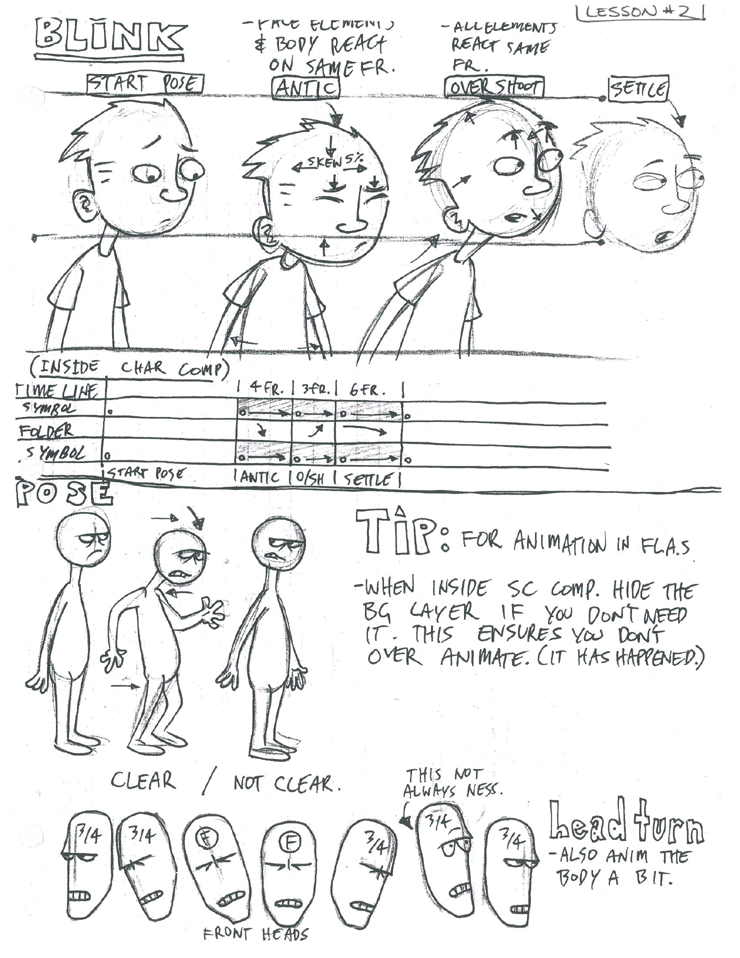 LESSON #2
BLINK
-FACE ELEMENTS
& BODY REACT
ON SAME FR.
-ALL ELEMENTS
REACT SAME
FR.
START POSE
ANTIC
OVERSHOOT
SETTLE
SKEW 5%
(INSIDE CHAR COMP)
TIME LINE 4 FR. 3 FR. 6 FR.
SYMBOL
FOLDER
SYMBOL
START POSE ANTIC O/SH SETTLE
POSE
TIP: FOR ANIMATION IN FLA.S
-WHEN INSIDE SC COMP. HIDE THE
BG LAYER IF YOU DON'T NEED
IT. THIS ENSURES YOU DON'T
OVER ANIMATE. (IT HAS HAPPENED.)
CLEAR / NOT CLEAR.
THIS NOT
ALWAYS NESS.
head turn
-ALSO ANIM THE
BODY A BIT.
3/4 3/4 F F 3/4 3/4 3/4
FRONT HEADS